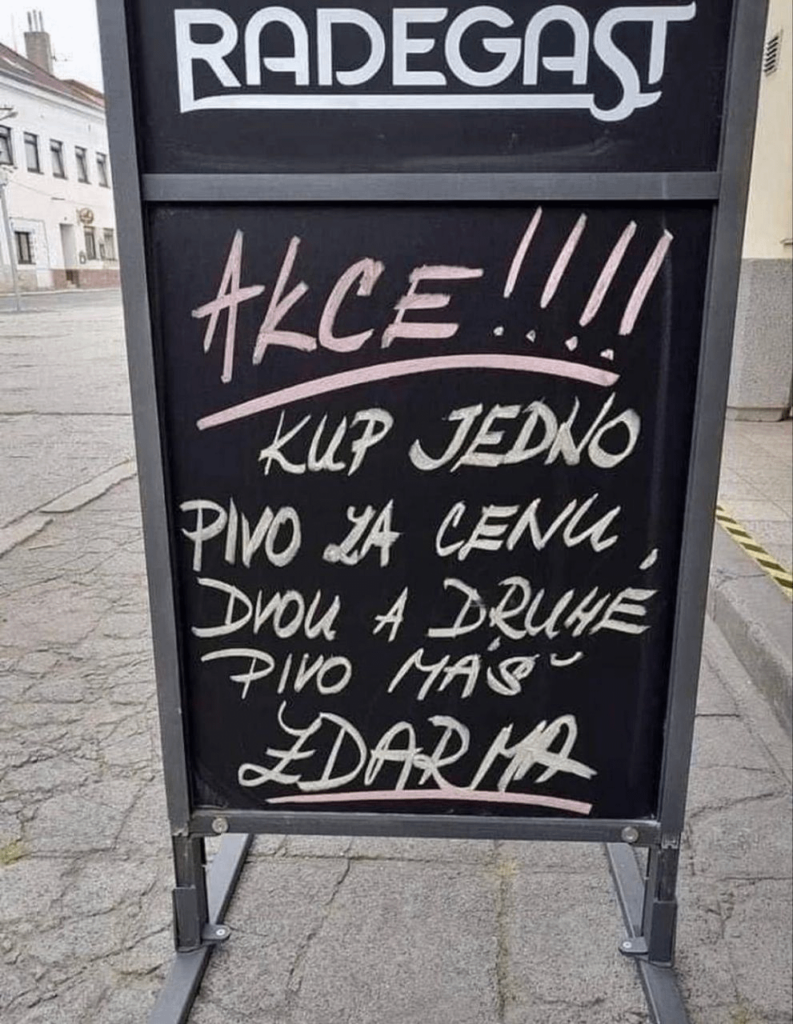 RADEGAST
AKCE!!!!
KUP JEDNO
PIVO ZA CENU
DVOU A DRUHÉ
PIVO MÁŠ
ZDARMA